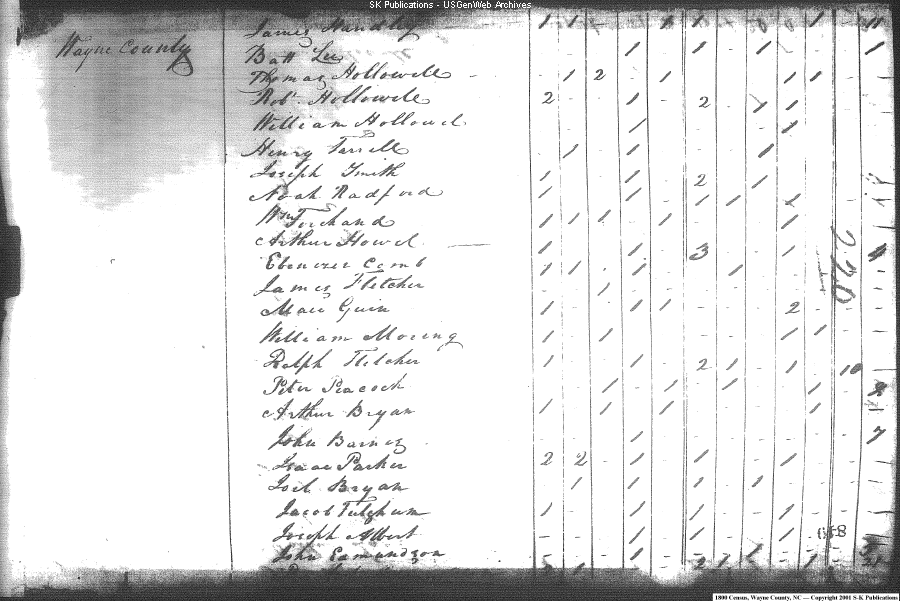 SK Publications - USGenWeb Archives
James Handley 1 1 - 1 1 1 11
Wayne County
Batt Lee 1 1 1 1
Thomas Hollowell - 1 2 - 1 - - - 1 1
Robt Hollowell 2 - - 1 - 2 - 1 1
William Hollowel 1 1
Henry Farrell 1 1 1
Joseph Smith 1 1 2 1
Noah Radford 1 1 1 1 1
Wm 1 1 1 1 1
Arthur Howel 1 1 3 1 4
Ebenezer Comb 1 1 1 1
220
James Fletcher 1
Guin 1 1 1 2
William Moring 1 1 1 1
Ralph Fletcher 1 1 2 1 1 10
Peter Peacock 1 1 1 1
Arthur Bryan 1 1 1 1
John Barnes 1 7
Isaac Parker 2 2 1 1 1
Joel Bryan 1 1 1 1
Jacob Fulghum 1 1 1 1
Joseph Albert 1 1 1
John Edmundson
1800 Census, Wayne County, NC — Copyright 2001 S-K Publications